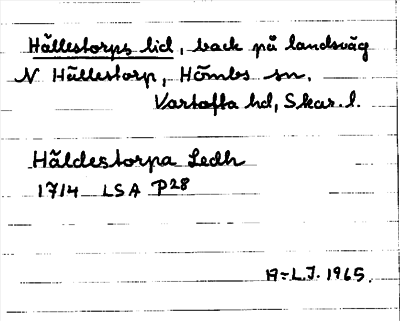 Hällestorps lid, back på landsväg
N Hällestorp, Hömbs sn,
Vartofta hd, Skar. l.
Häldestorpa Ledh
1714 LSA P28
A-L.J. 1965.